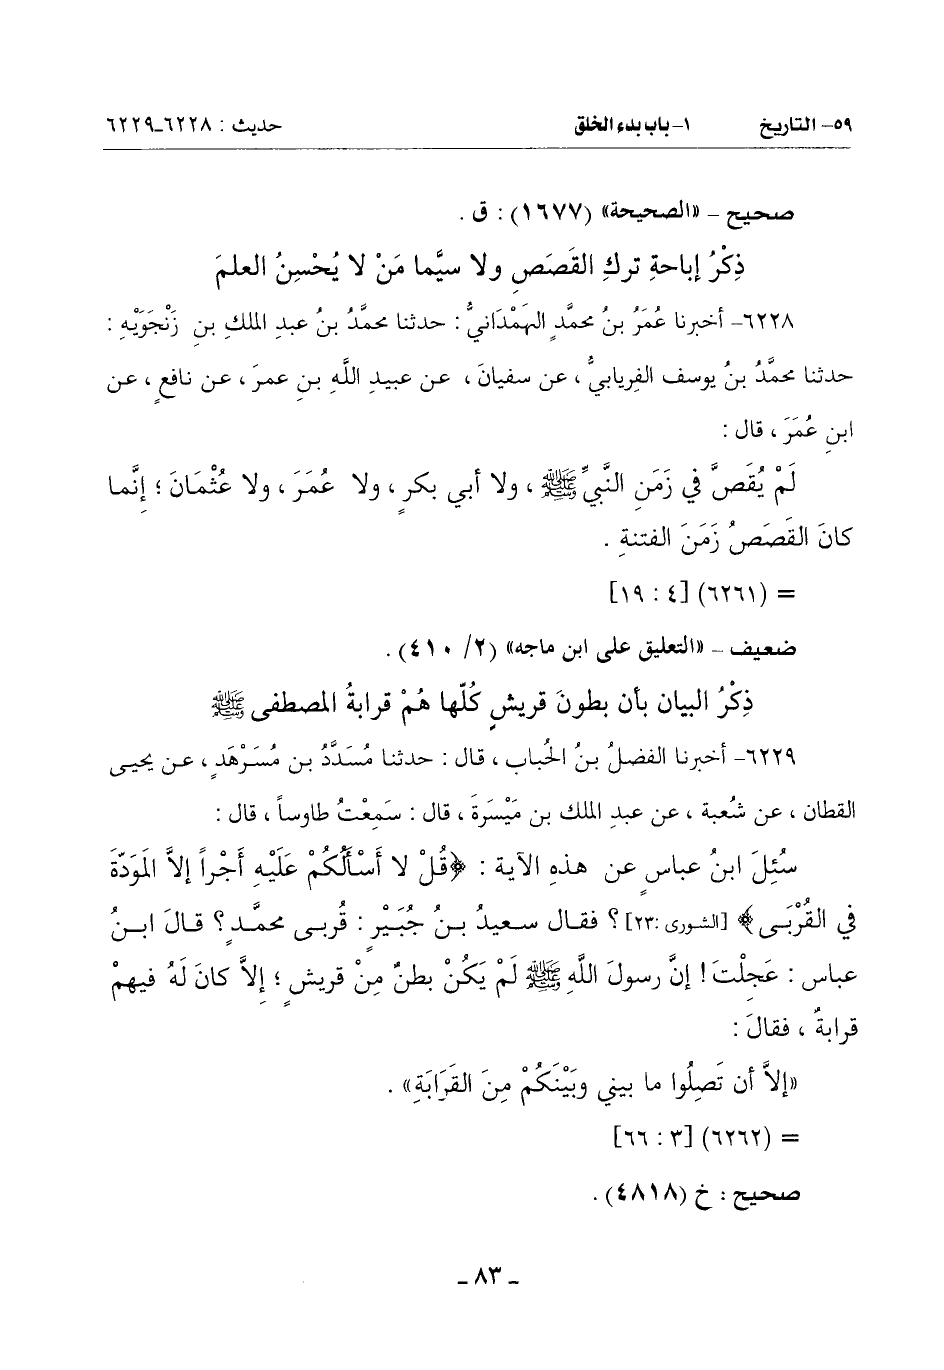 ٥٩- التاريخ ١- باب بدء الخلق حديث : ٦٢٢٨-٦٢٢٩
صحيح - «الصحيحة» (١٦٧٧) : ق .
ذِكْرُ إباحةِ تركِ القَصَصِ ولا سيَّما مَنْ لا يُحْسِنُ العلمَ
٦٢٢٨- أخبرنا عُمَرُ بنُ محمَّدٍ الهَمْدَانيُّ : حدثنا محمَّدُ بنُ عبدِ الملكِ بنِ زَنْجَوَيْهِ :
حدثنا محمَّدُ بنُ يوسف الفِريابيُّ ، عن سفيانَ ، عن عبيدِ اللَّهِ بنِ عمرَ ، عن نافعٍ ، عن
ابنِ عُمَرَ ، قال :
لَمْ يُقَصَّ في زَمَنِ النَّبيِّ ﷺ ، ولا أبي بكرٍ ، ولا عُمَرَ ، ولا عُثْمَانَ ؛ إنَّما
كانَ القَصَصُ زَمَنَ الفتنةِ .
= (٦٢٦١) [٤ : ١٩]
ضعيف - «التعليق على ابن ماجه» (٢/ ٤١٠) .
ذِكْرُ البيان بأن بطونَ قريشٍ كُلَّها هُمْ قرابةُ المصطفى ﷺ
٦٢٢٩- أخبرنا الفضلُ بنُ الحُباب ، قال : حدثنا مُسَدَّدُ بن مُسَرْهَدٍ ، عن يحيى
القطان ، عن شُعبة ، عن عبدِ الملك بن مَيْسَرَةَ ، قال : سَمِعْتُ طاوساً ، قال :
سُئِلَ ابنُ عباسٍ عن هذهِ الآية : ﴿قُلْ لا أَسْأَلُكُمْ عَلَيْهِ أَجْراً إلاَّ المَوَدّةَ
في القُرْبَى﴾ [الشورى :٢٣] ؟ فقال سعيدُ بنُ جُبَيْرٍ : قُربى محمَّدٍ ؟ قالَ ابنُ
عباس : عَجِلْتَ ! إنَّ رسولَ اللَّهِ ﷺ لَمْ يَكُنْ بطنٌ مِنْ قريشٍ ؛ إلاَّ كانَ لَهُ فيهمْ
قرابةٌ ، فقالَ :
«إلاَّ أن تَصِلُوا ما بيني وبَيْنَكُمْ مِنَ القَرَابَةِ» .
= (٦٢٦٢) [٣ : ٦٦]
صحيح : خ (٤٨١٨) .
- ٨٣ -